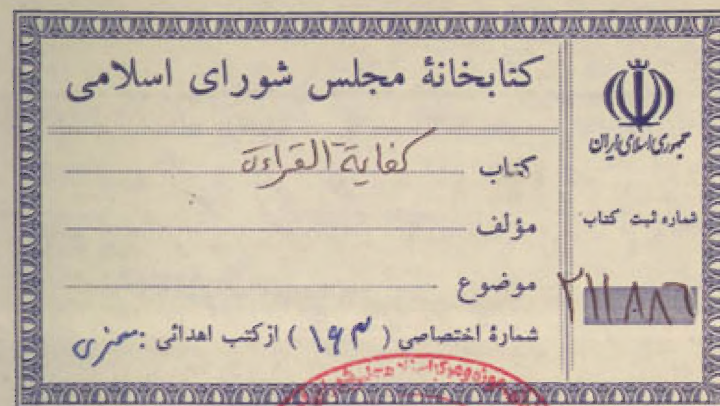 کتابخانهٔ مجلس شورای اسلامی
جمهوری اسلامی ایران
کتاب کفایة القراءة
مؤلف
موضوع
شمارهٔ اختصاصی ( ۱۶۳ ) از کتب اهدائی :
شماره ثبت کتاب
۲۱۱۸۸۶